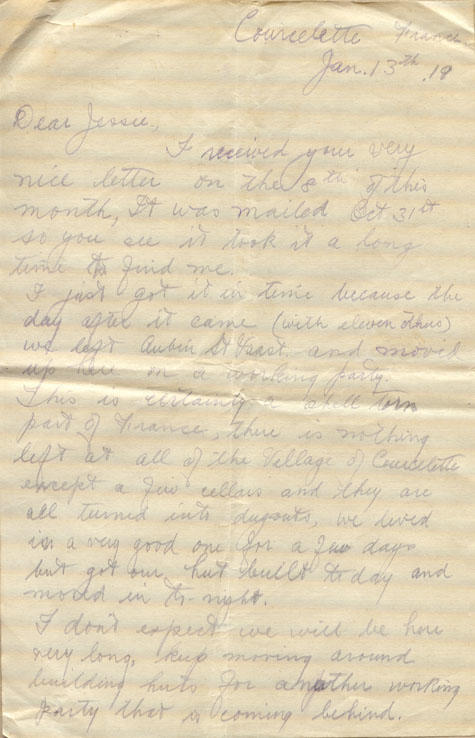 Courcelette France
Jan. 13th 19
Dear Jessie,
I received your very
nice letter on the 8th of this
month, It was mailed Oct 31st
so you see it took it a long
time to find me.
I just got it in time because the
day after it came (with eleven others)
we left Aubin St Vaast and moved
up here on a working party.
This is certainly a shell torn
part of France, there is nothing
left at all of the Village of Courcelette
except a few cellars and they are
all turned into dugouts, we lived
in a very good one for a few days
but got our hut built today and
moved in to-night.
I don't expect we will be here
very long, keep moving around
building huts for another working
party that is coming behind.